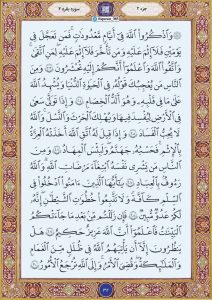 جزء ۲
سوره بقره ۲
۞ وَٱذۡكُرُواْ ٱللَّهَ فِيٓ أَيَّامٖ مَّعۡدُودَٰتٖۚ فَمَن تَعَجَّلَ فِي
يَوۡمَيۡنِ فَلَآ إِثۡمَ عَلَيۡهِ وَمَن تَأَخَّرَ فَلَآ إِثۡمَ عَلَيۡهِۖ لِمَنِ ٱتَّقَىٰۗ
وَٱتَّقُواْ ٱللَّهَ وَٱعۡلَمُوٓاْ أَنَّكُمۡ إِلَيۡهِ تُحۡشَرُونَ ۝ وَمِنَ
ٱلنَّاسِ مَن يُعۡجِبُكَ قَوۡلُهُۥ فِي ٱلۡحَيَوٰةِ ٱلدُّنۡيَا وَيُشۡهِدُ ٱللَّهَ
عَلَىٰ مَا فِي قَلۡبِهِۦ وَهُوَ أَلَدُّ ٱلۡخِصَامِ ۝ وَإِذَا تَوَلَّىٰ سَعَىٰ
فِي ٱلۡأَرۡضِ لِيُفۡسِدَ فِيهَا وَيُهۡلِكَ ٱلۡحَرۡثَ وَٱلنَّسۡلَۚ وَٱللَّهُ
لَا يُحِبُّ ٱلۡفَسَادَ ۝ وَإِذَا قِيلَ لَهُ ٱتَّقِ ٱللَّهَ أَخَذَتۡهُ ٱلۡعِزَّةُ
بِٱلۡإِثۡمِۚ فَحَسۡبُهُۥ جَهَنَّمُۖ وَلَبِئۡسَ ٱلۡمِهَادُ ۝ وَمِنَ
ٱلنَّاسِ مَن يَشۡرِي نَفۡسَهُ ٱبۡتِغَآءَ مَرۡضَاتِ ٱللَّهِۚ وَٱللَّهُ
رَءُوفُۢ بِٱلۡعِبَادِ ۝ يَٰٓأَيُّهَا ٱلَّذِينَ ءَامَنُواْ ٱدۡخُلُواْ فِي
ٱلسِّلۡمِ كَآفَّةٗ وَلَا تَتَّبِعُواْ خُطُوَٰتِ ٱلشَّيۡطَٰنِۚ إِنَّهُۥ
لَكُمۡ عَدُوّٞ مُّبِينٞ ۝ فَإِن زَلَلۡتُم مِّنۢ بَعۡدِ مَا جَآءَتۡكُمُ
ٱلۡبَيِّنَٰتُ فَٱعۡلَمُوٓاْ أَنَّ ٱللَّهَ عَزِيزٌ حَكِيمٌ ۝ هَلۡ
يَنظُرُونَ إِلَّآ أَن يَأۡتِيَهُمُ ٱللَّهُ فِي ظُلَلٖ مِّنَ ٱلۡغَمَامِ
وَٱلۡمَلَٰٓئِكَةُ وَقُضِيَ ٱلۡأَمۡرُۚ وَإِلَى ٱللَّهِ تُرۡجَعُ ٱلۡأُمُورُ ۝
۳۲